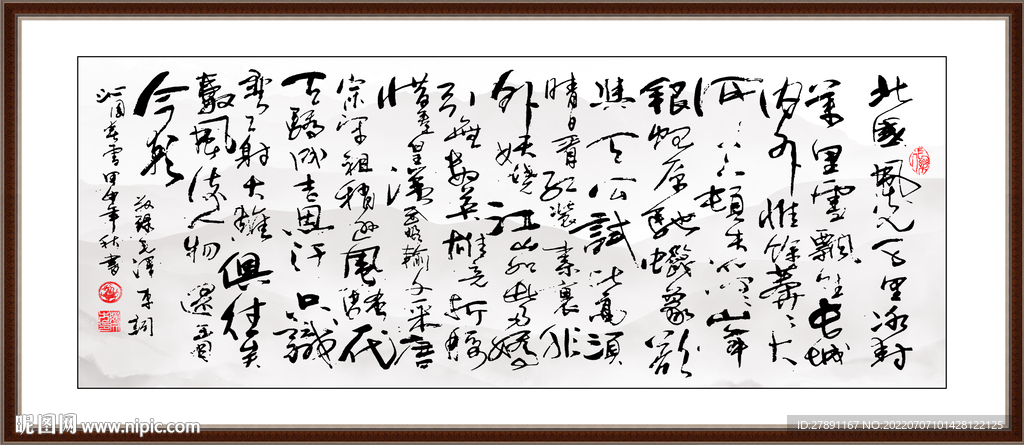 北国风光千里冰封
万里雪飘望长城
内外惟余莽莽大
河上下顿失滔滔山舞
银蛇原驰蜡象欲
与天公试比高须
晴日看红装素裹分
外妖娆江山如此多娇
引无数英雄竞折腰
惜秦皇汉武略输文采唐
宗宋祖稍逊风骚一代
天骄成吉思汗只识
弯弓射大雕俱往矣
数风流人物还看
今朝
沁园春雪甲午年秋书
昵图网 www.nipic.com
ID:27891167 NO:20220707101428122125